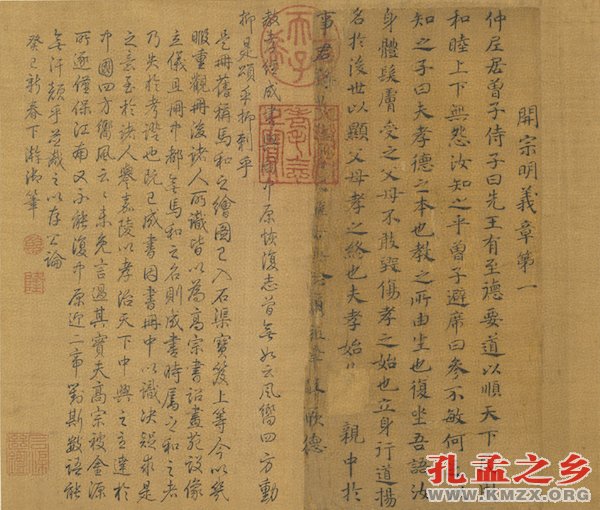 開宗明義章第一
仲尼居曾子侍子曰先王有至德要道以順天下
和睦上下無怨汝知之乎曾子避席曰參不敏何
知之子曰夫孝德之本也教之所由生也復坐吾語汝
身體髮膚受之父母不敢毀傷孝之始也立身行道揚
名於後世以顯父母孝之終也夫孝始 親中於
事君
教孝經成 中原恢復志首無如云風嚮四方動
抑是頌乎抑刺乎
是冊舊稱馬和之繪圖已入石渠寶笈上等今以幾
暇重觀冊後諸人所識皆以為高宗書詔畫苑設像
立儀且冊中都無馬和之名則成書時屬之和之者
乃失於考證也既已成書因書冊中以識決疑求是
之意至於諸人舉嘉陵以孝治天下中興之立達於
中國四方嚮風云云未免言過其實夫高宗被金源
所逐僅保江南又不能復中原迎二帝對斯數語能
無汗顏乎並識之以存公論
癸巳新春下澣御筆
孔孟之乡
WWW.KMZX.ORG